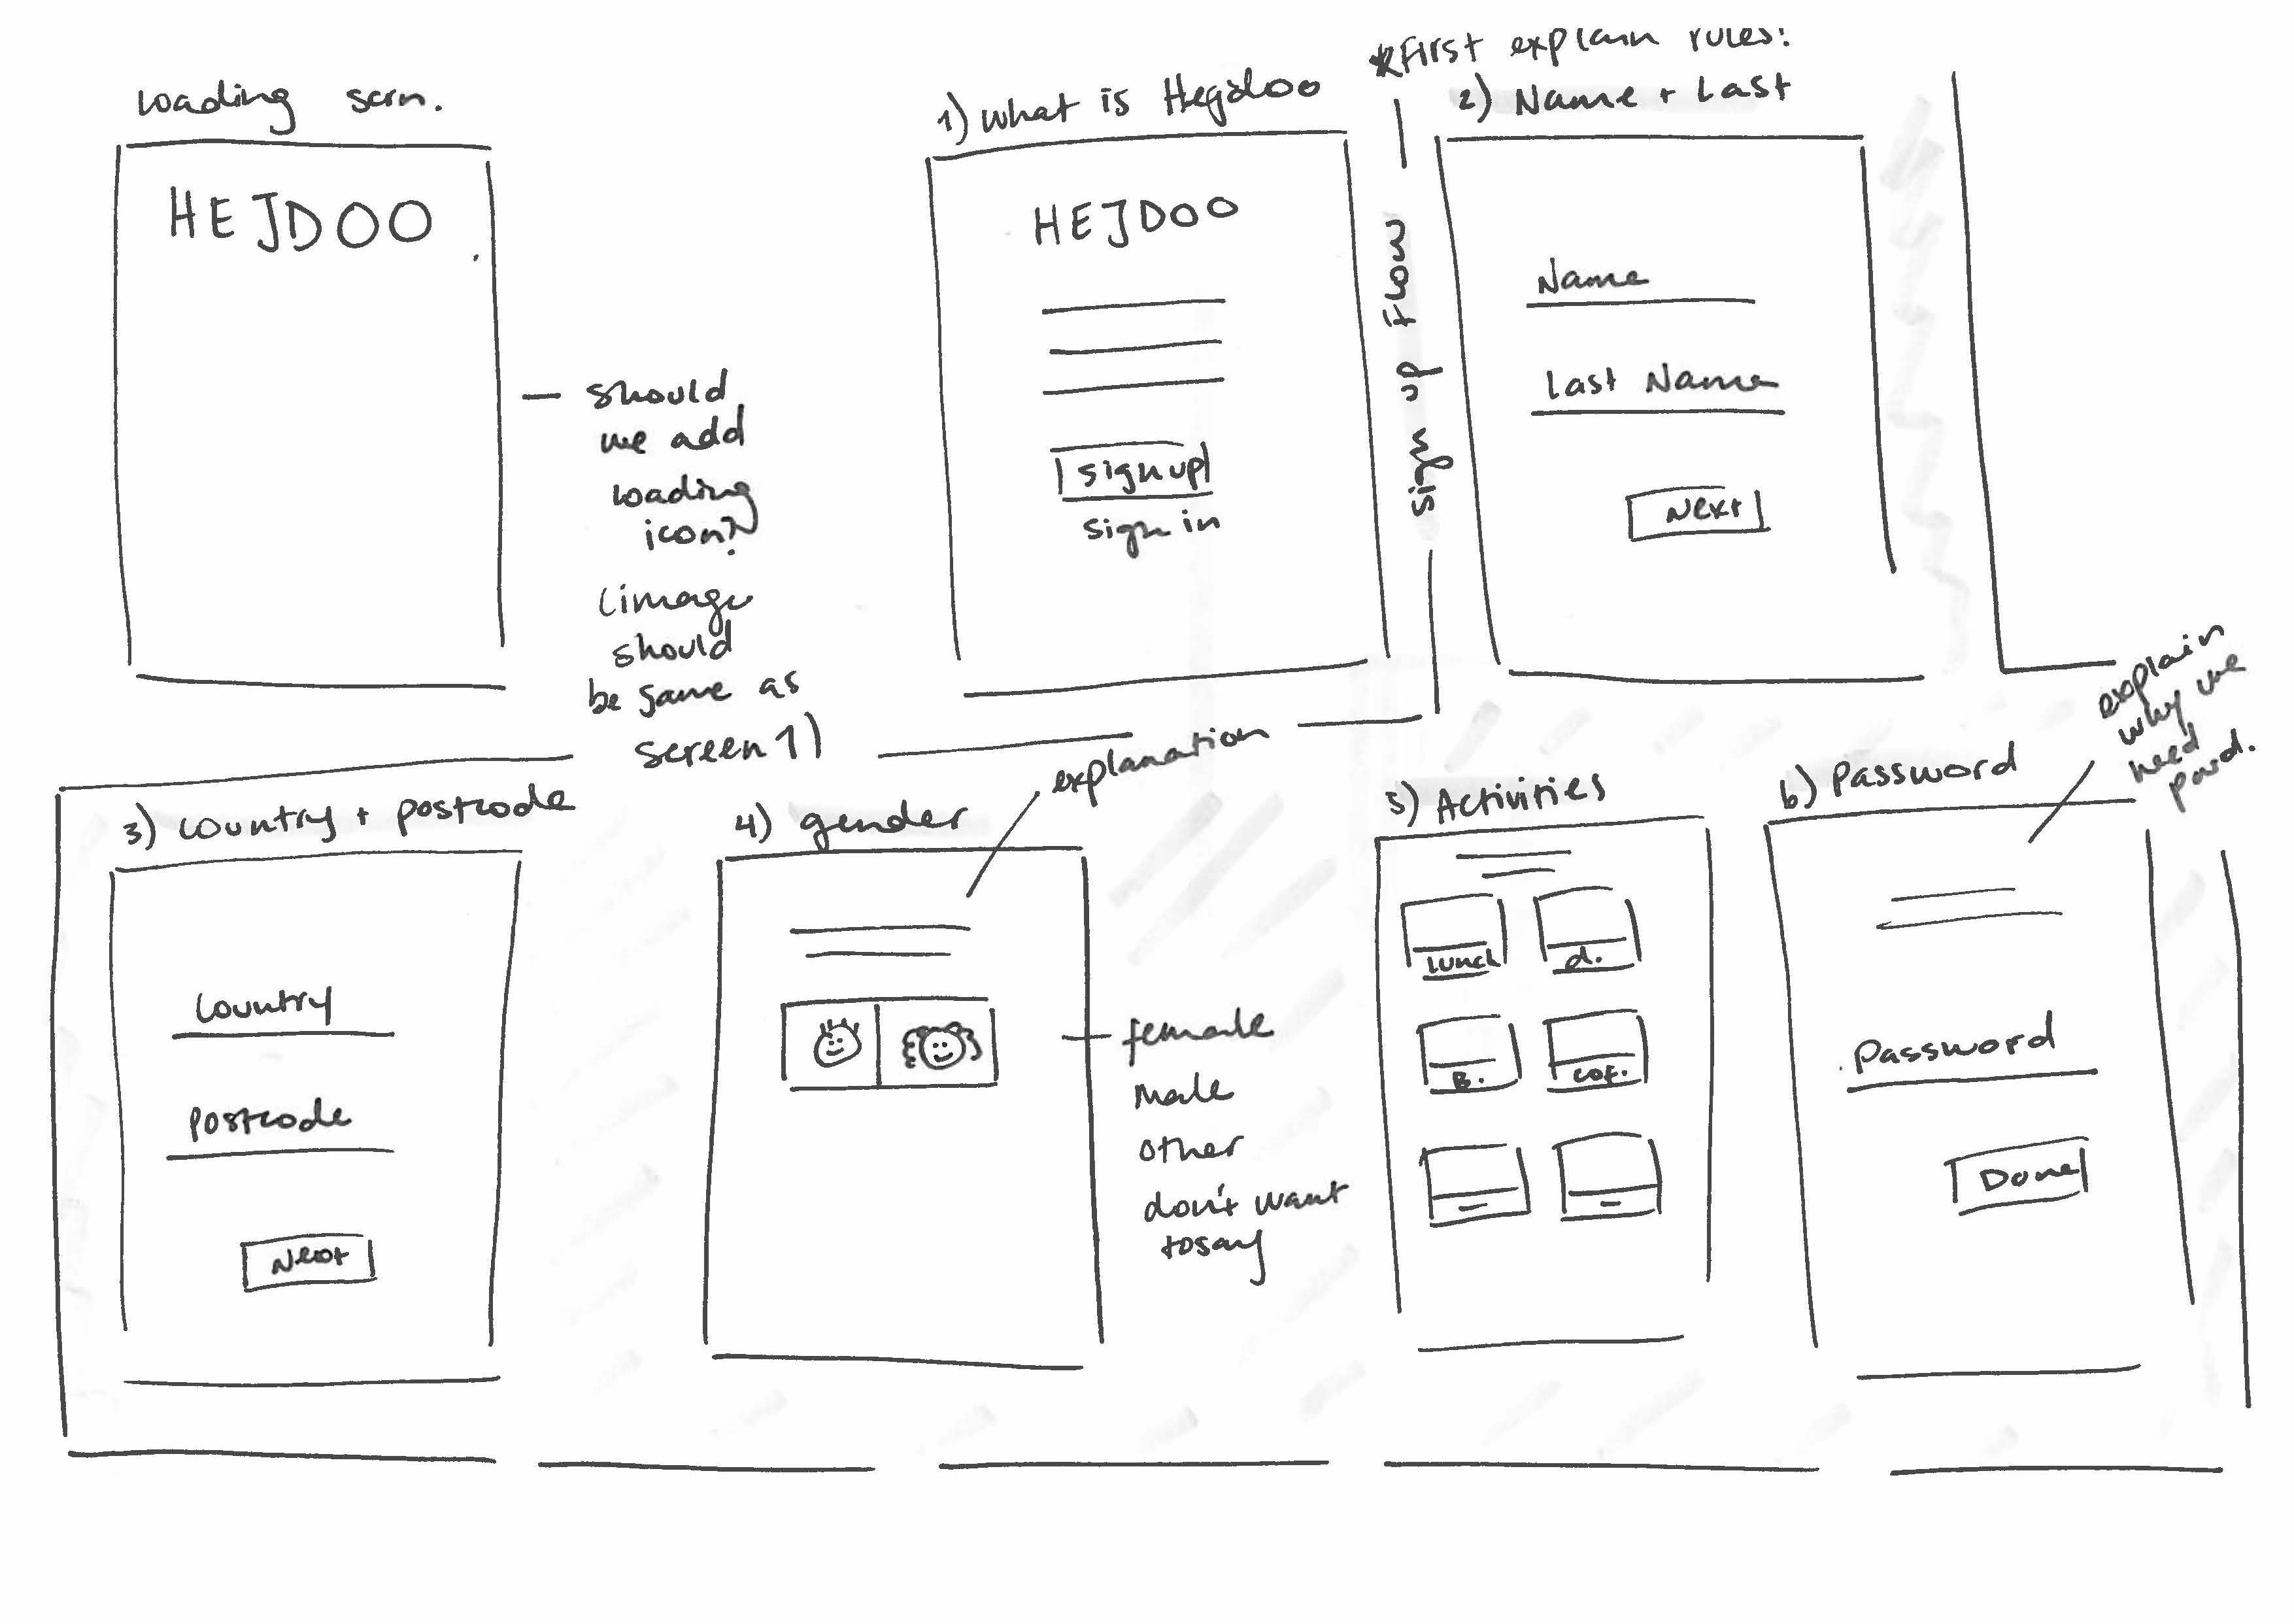 loading scrn.
HEJDOO
— should
we add
loading
icon?
(image
should
be same as
screen 1)
1) What is Hejdoo
HEJDOO
sign up
sign in
sign up flow
*First explain rules:
2) Name + Last
Name
Last Name
Next
3) Country + postcode
Country
postcode
Next
4) gender
explanation
female
male
other
don't want
to say
5) Activities
Lunch
d.
B.
cof.
6) Password
explain
why we
need
pswd.
Password
Done